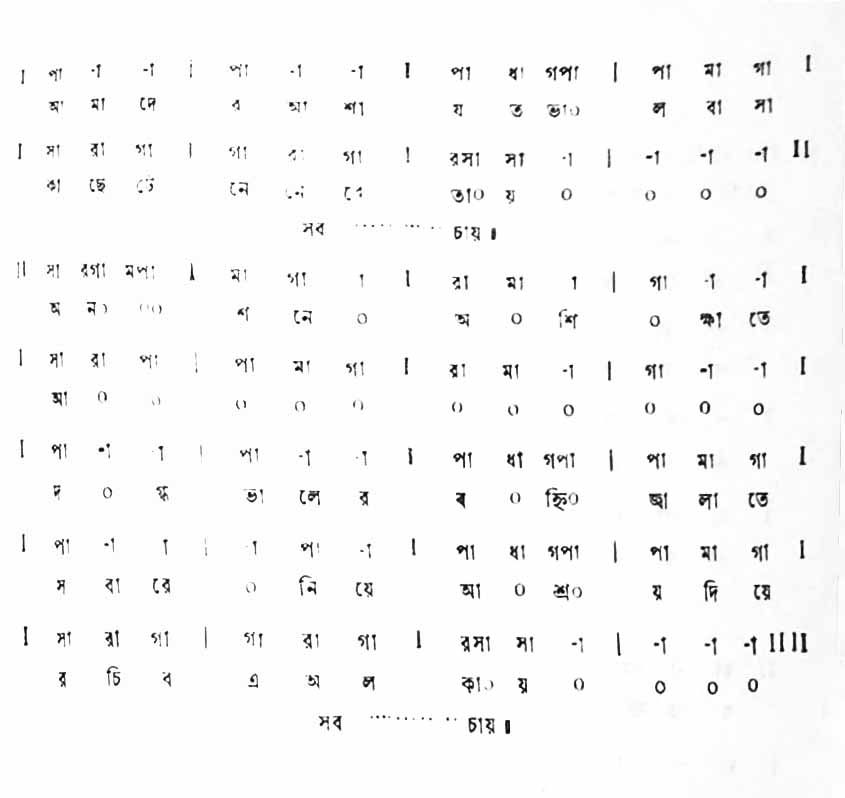 I পা -া -া | পা -া -া I পা ধা গপা | পা মা গা I
আ মা দে র আ শা য ত ভা০ ল বা সা
I সা রা গা | গা রা গা I রসা সা -া | -া -া -া II
কা ছে টে নে নে তা০ য় ০ ০ ০ ০
সব ............ চায়॥
II সা রগা মপা I মা গা া I রা মা া | গা -া -া I
অ ন০ ০০ শ নে ০ অ ০ শি ০ ক্ষা তে
I সা রা পা | পা মা গা I রা মা -া | গা -া -া I
আ ০ ০ ০ ০ ০ ০ ০ ০ ০ ০ ০
I পা -া -া | পা -া -া I পা ধা গপা | পা মা গা I
দ ০ গ্ধ ভা লে র ব ০ হ্নি০ জ্বা লা তে
I পা -া া | -া পা -া I পা ধা গপা | পা মা গা I
স বা রে ০ নি য়ে আ ০ শ্র০ য় দি য়ে
I সা রা গা | গা রা গা I রসা সা -া | -া -া -া II II
র চি ব এ অ ল কা০ য় ০ ০ ০ ০
সব ............ চায়॥